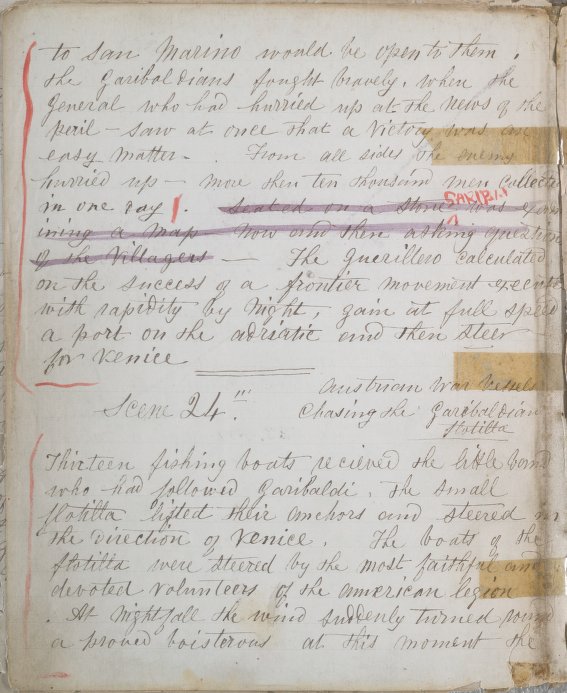 to San Marino would be open to them.
the Garibaldians fought bravely. when the
General who had hurried up at the news of the
peril – saw at once that a Victory was an
easy matter. . From all sides the enemy
hurried up – more then ten thousand men collecte
in one ray . Seated on a Stone was exam
GARIBALDI
ining a map Now and then asking question
of the Villagers — The Guerillero calculated
on the success of a frontier movement execute
with rapidity by Night, gain at full speed
a port on the adriatic and then steer
for Venice
Austrian War Vessels
Scene 24 . Chasing the Garibaldian
flotilla
Thirteen fishing boats recieved the little band
who had followed Garibaldi. the small
flotilla listed their anchors and steered in
the direction of Venice. The boats of the
flotilla were steered by the most faithful and
devoted volunteers of the american legion
. At nightfall the wind suddenly turned round
a proved boisterous at this moment the